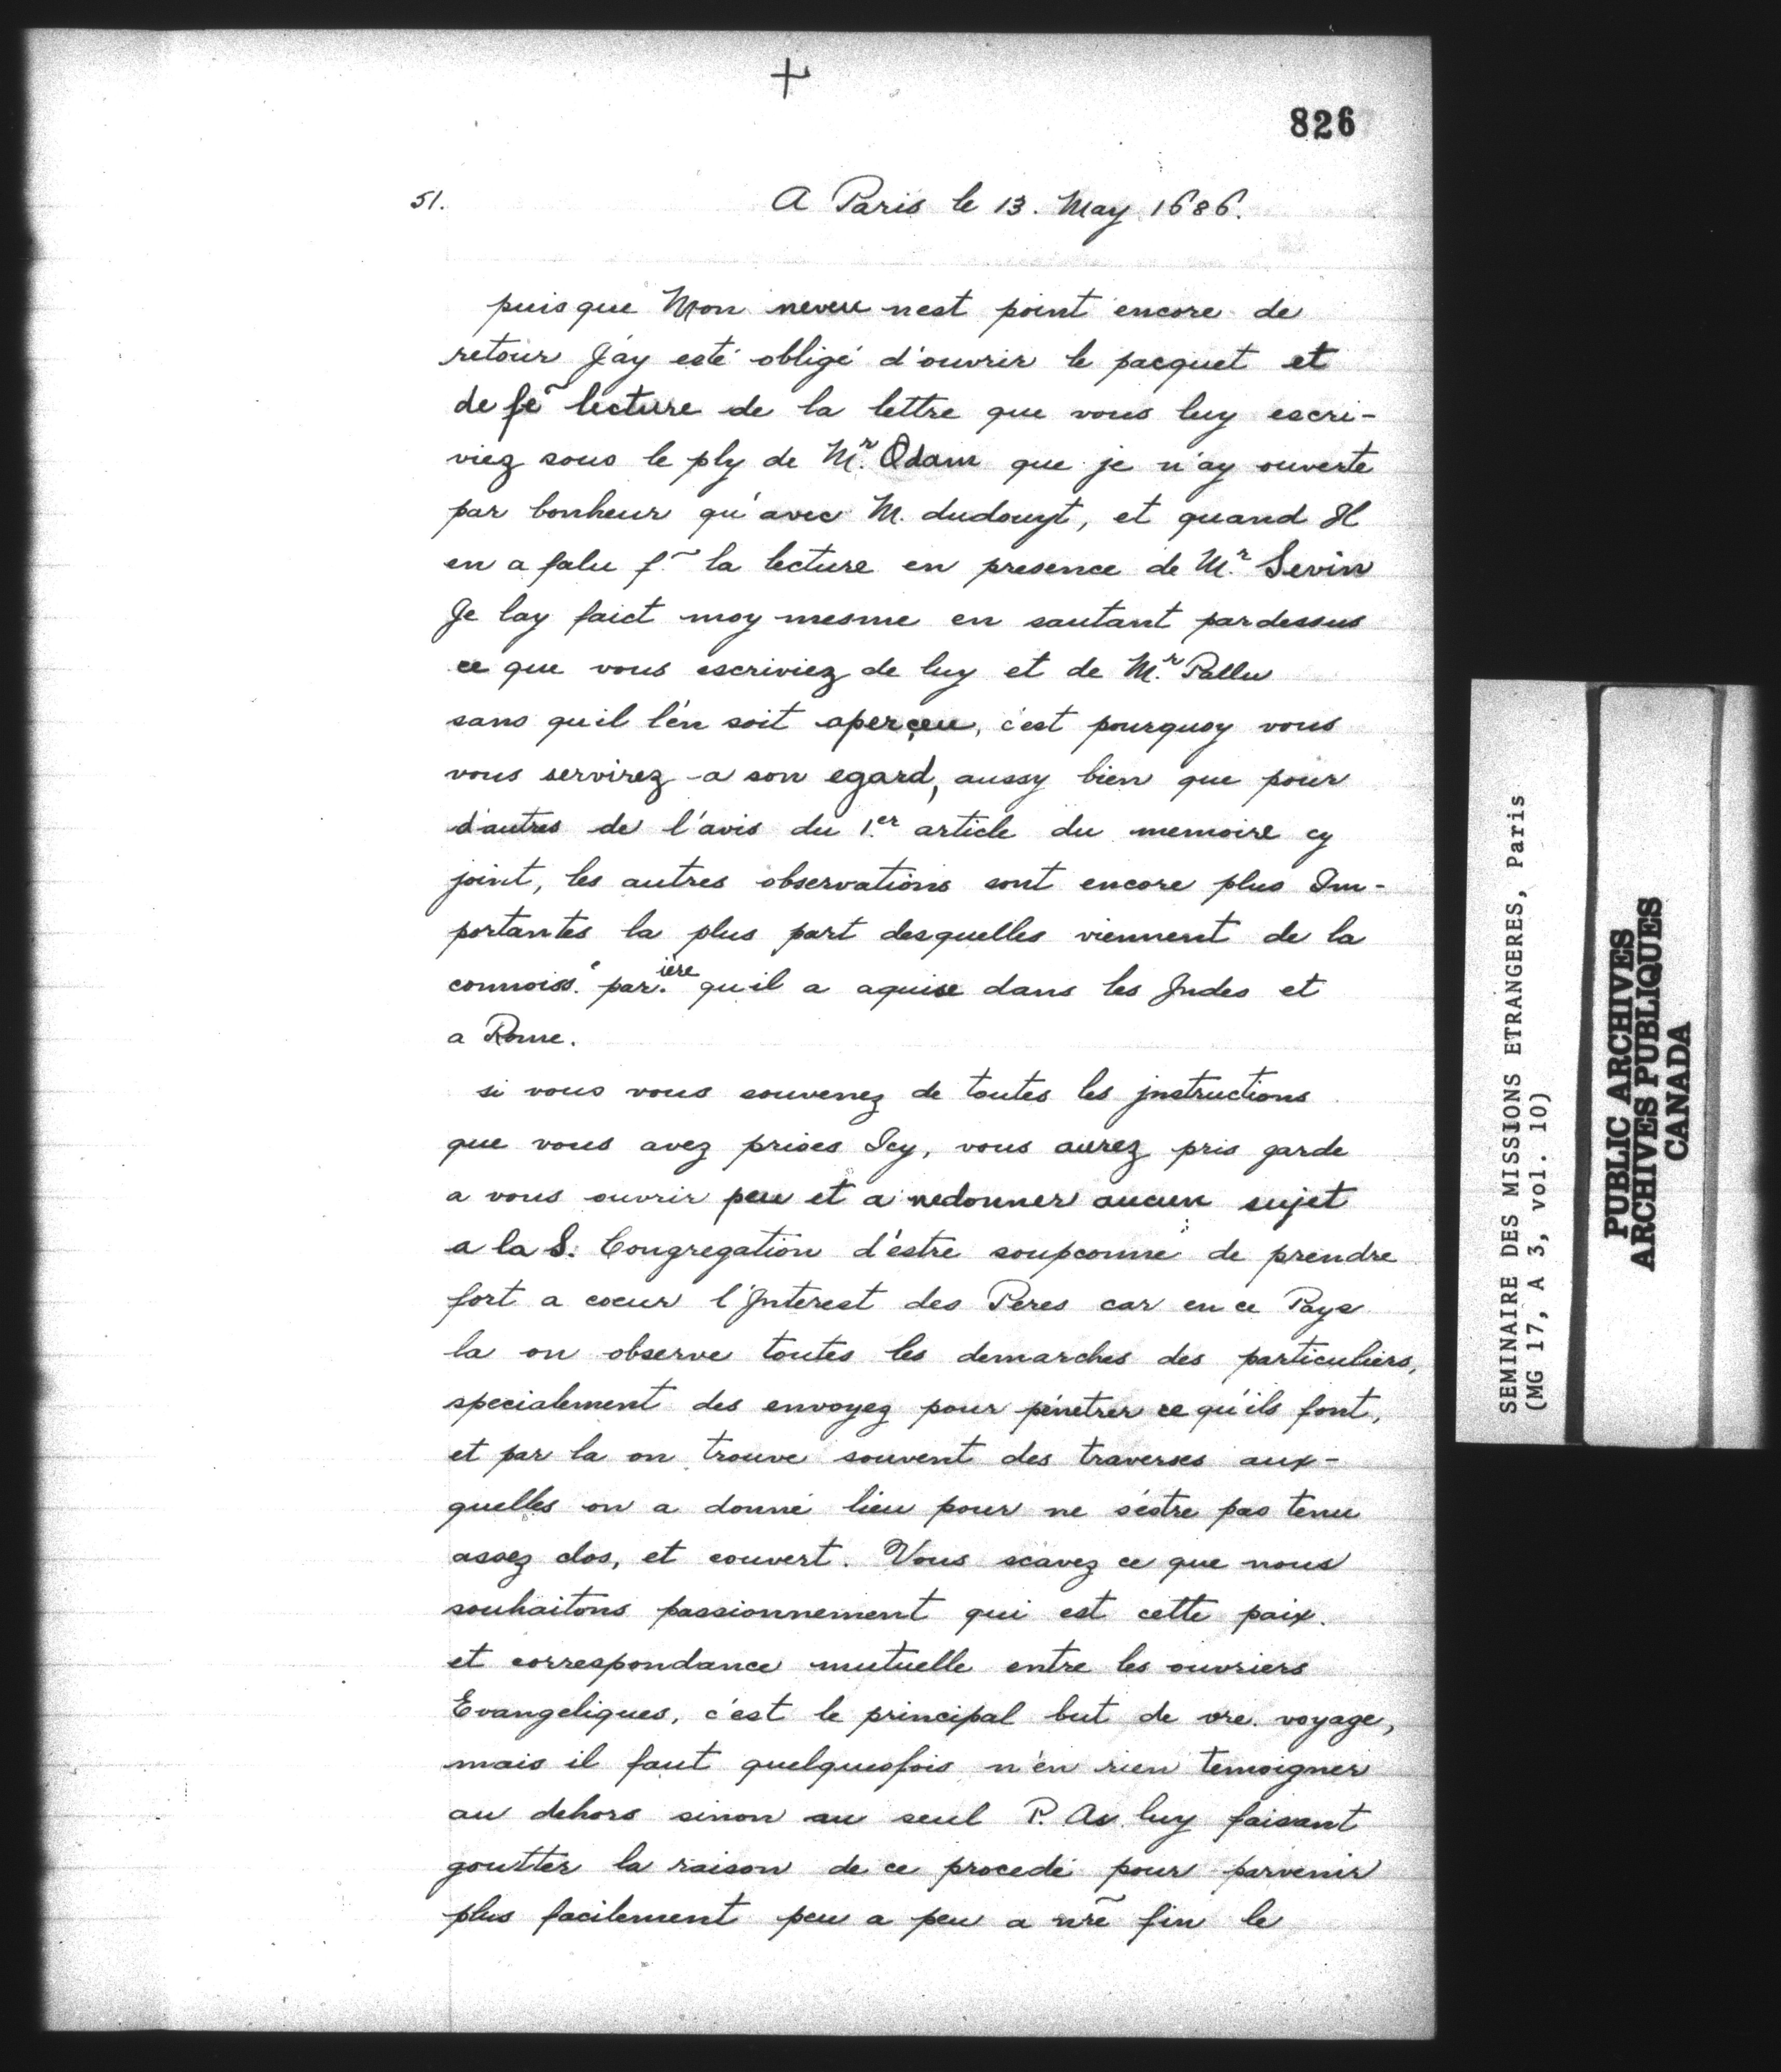 +
826
51.
A Paris le 13. May 1686.
puisque Mon neveu nest point encore de
retour J'ay esté obligé d'ouvrir le pacquet et
de fe~ lecture de la lettre que vous luy escri-
viez sous le ply de Mr. Odam que je n'ay ouverte
par bonheur qu'avec M. dudouyt, et quand Il
en a falu f~ la lecture en presence de Mr. Sevin
Je lay faict moy mesme en sautant pardessus
ce que vous escriviez de luy et de Mr. Pallu
sans quil l'en soit aperçeu, c'est pourquoy vous
vous servirez a son egard, aussy bien que pour
d'autres de l'avis du 1.er article du memoire cy
joint, les autres observations sont encore plus Im-
portantes la plus part desquelles viennent de la
connoiss.e par.iere quil a aquise dans les Indes et
a Rome.
si vous vous souvenez de toutes les jnstructions
que vous avez prises Icy, vous aurez pris garde
a vous ouvrir peu et a nedonner aucun sujet
a la S. Congregation d'estre soupconné de prendre
fort a coeur l'Interest des Peres car en ce Pays
la on observe toutes les demarches des particuliers,
specialement des envoyez pour pénetrer ce qu'ils font,
et par la on trouve souvent des traverses aux-
quelles on a donné lieu pour ne s'estre pas tenu
assez clos, et couvert. Vous scavez ce que nous
souhaitons passionnement qui est cette paix.
et correspondance mutuelle entre les ouvriers
Evangeliques, c'est le principal but de vre. voyage,
mais il faut quelquesfois n'en rien temoigner
au dehors sinon au seul P. As luy faisant
goutter la raison de ce procedé pour parvenir
plus facilement peu a peu a nre~ fin le
SEMINAIRE DES MISSIONS ETRANGERES, Paris
(MG 17, A 3, vol. 10)
PUBLIC ARCHIVES
ARCHIVES PUBLIQUES
CANADA